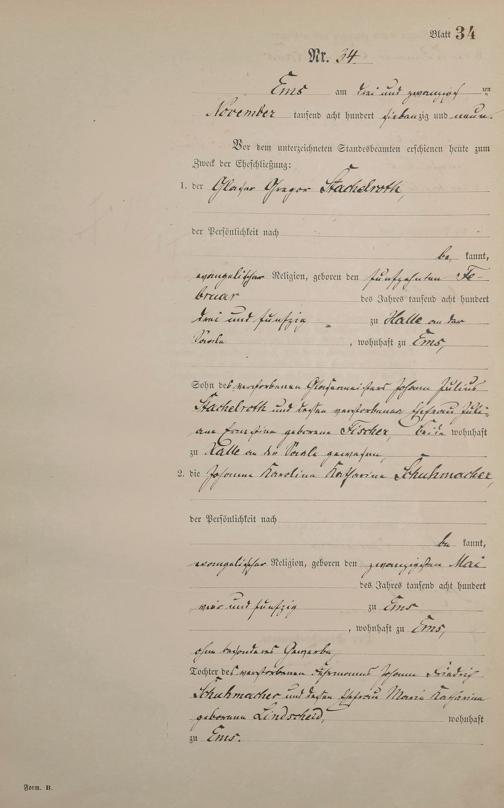 Blatt 34
Nr. 34.
Ems am drei und zwanzigsten
November tausend acht hundert siebenzig und neun.
Vor dem unterzeichneten Standesbeamten erschienen heute zum
Zweck der Eheschließung:
1. der Glaser Gregor Stachelroth,
der Persönlichkeit nach
be kannt,
evangelischer Religion, geboren den fünfzehnten Fe-
bruar des Jahres tausend acht hundert
drei und fünfzig zu Halle an der
Saale, wohnhaft zu Ems,
Sohn des verstorbenen Glasermeisters Johann Julius
Stachelroth und dessen verstorbenen Ehefrau Juli-
ane Ernestine geborene Fischer, beide wohnhaft
zu Halle an der Saale gewesen,
2. die Johanna Karolina Katharina Schuhmacher,
der Persönlichkeit nach
be kannt,
evangelischer Religion, geboren den zwanzigsten Mai
des Jahres tausend acht hundert
vier und fünfzig zu Ems
, wohnhaft zu Ems,
ohne besonderes Gewerbe,
Tochter des verstorbenen Johann Friedrich
Schuhmacher und dessen Ehefrau Maria Katharina
geborene Lindscheid, wohnhaft
zu Ems.
Form. B.